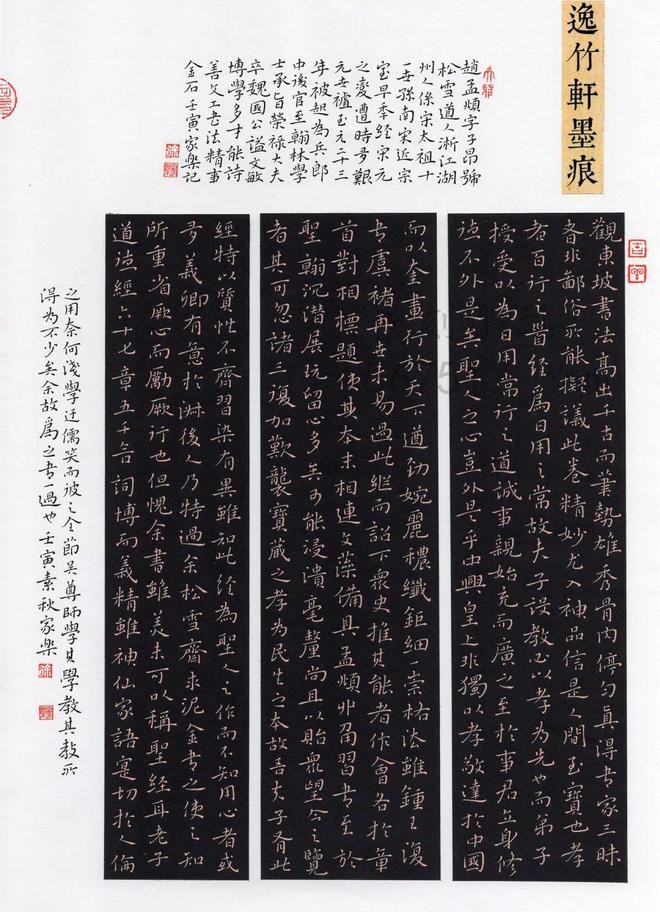 逸竹軒墨痕
趙孟頫字子昂號
松雪道人浙江湖
州人係宋太祖十
一世孫南宋近宗
室早年經宋元
之變遭時艱
元世祖至元二十三
年被起為兵郎
中後官至翰林學
士承旨榮祿大夫
卒魏國公謚文敏
博學多才能詩
善文工書法精事
金石壬寅家樂記
觀東坡書法高出千古而筆勢雄秀骨肉停勻真得書家三昧
者非鄙俗所能擬議此卷精妙尤入神品信是人間至寶也孝
者百行之首經為日用之常故夫子設教必以孝為先也而弟子
授受以為日用常行之道誠事親始充而廣之至於事君立身修
德不外是矣聖人之心豈外是乎中興皇上非獨以孝敬達於中國
而以奎畫行於天下遒勁婉麗穠纖鉅細一崇格法雖鍾王復
書真褚再世未易過此繼而詔下眾史推其能者作會各於章
首對相標題使其本末相連文藻備具孟頫非習書至於
聖翰沉潛展玩留心多矣可能浸漬毫釐尚且以貽眾望今之覽
者其可忽諸三復加歎襲寶藏之孝為民生之本故吾夫子有此
經特以質性不齊習染有異雖知此經為聖人之作而不知用心者或
義卿有意於淑後人乃特過余松雪齋求泥金書之使之知
所重省厥心而勵厥行也但愧余書雖美未可以稱聖經耳老子
道德經六十七章五千言詞博而義精雖神仙家語寔切於人倫
之用奈何淺學迂儒笑而彼之今節吳尊師學其學教其教所
得為不少矣余故為之書一過也壬寅素秋家樂